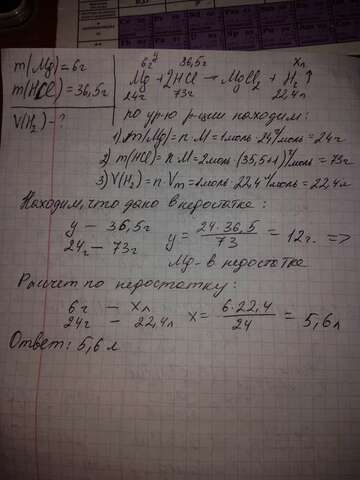 m(Mg)=6г
m(HCl)=36,5г
V(H₂)-?
6г y 36,5г xл
Mg + 2HCl → MgCl₂ + H₂↑
24г 73г 22,4л
по ур-ю р-ции находим:
1) m(Mg)=n·M=1моль·24г/моль=24г
2) m(HCl)=n·M=2моль·(35,5+1)г/моль=73г
3) V(H₂)=n·Vm=1моль·22,4л/моль=22,4л
Находим, что дано в недостатке:
y — 36,5г
24г — 73г
y = 24·36,5/73 = 12г. =>
Mg - в недостатке
Расчет по недостатку:
6г — xл
24г — 22,4л
x = 6·22,4/24 = 5,6л
Ответ: 5,6 л